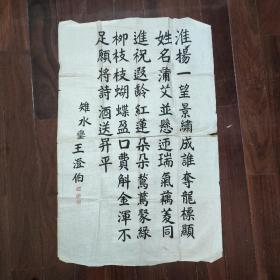 淮揚一望景繡成誰奪龍標顯
姓名蒲艾並懸迎瑞氣藕菱同
進祝遐齡紅蓮朵朵鶯鶯聚綠
柳枝枝蝴蝶盈口費斛金渾不
足願将詩酒送昇平
雉水堂王澄伯